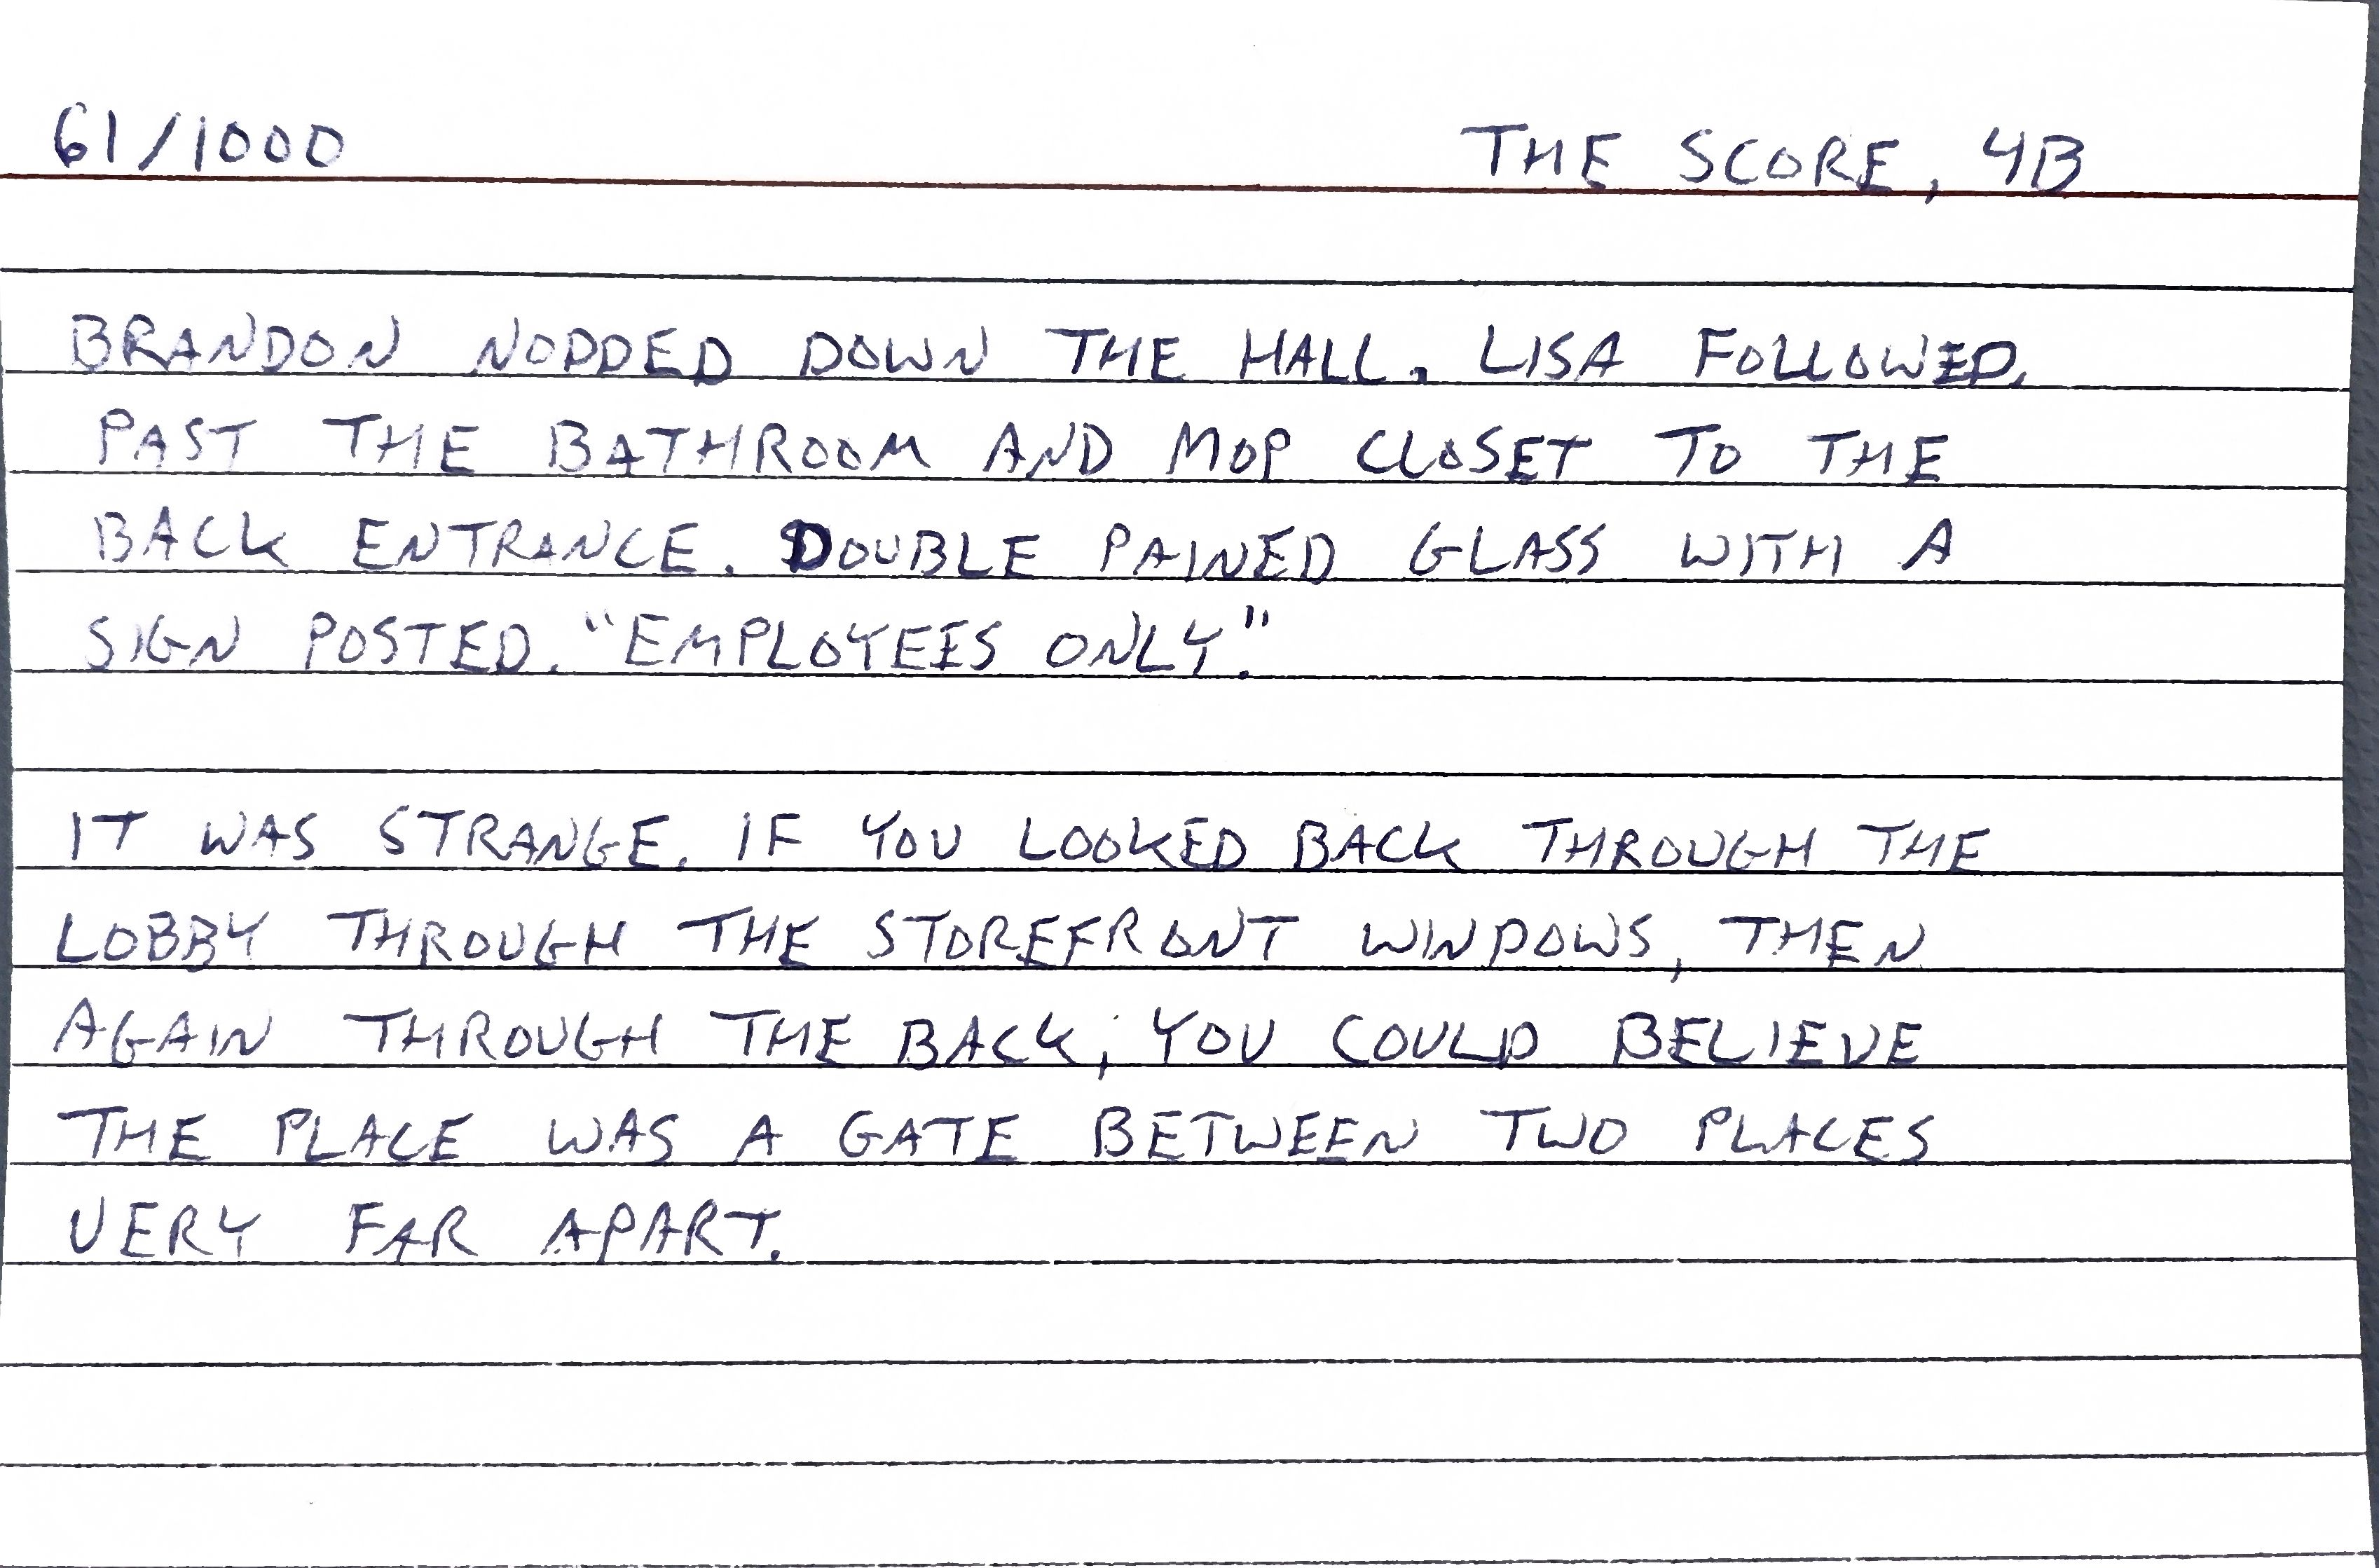 61/1000
THE SCORE, 4B
BRANDON NODDED DOWN THE HALL. LISA FOLLOWED,
PAST THE BATHROOM AND MOP CLOSET TO THE
BACK ENTRANCE. DOUBLE PAINED GLASS WITH A
SIGN POSTED. "EMPLOYEES ONLY."
IT WAS STRANGE. IF YOU LOOKED BACK THROUGH THE
LOBBY THROUGH THE STOREFRONT WINDOWS, THEN
AGAIN THROUGH THE BACK; YOU COULD BELIEVE
THE PLACE WAS A GATE BETWEEN TWO PLACES
VERY FAR APART.